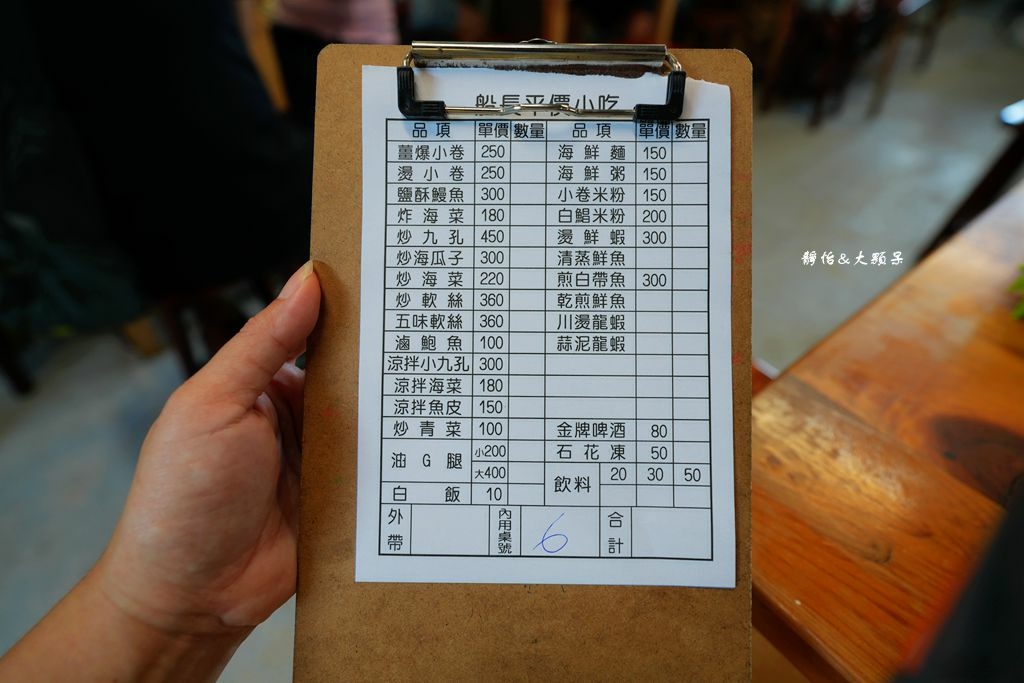 船長平價小吃
品項 單價 數量 品項 單價 數量
薑爆小卷 250 海鮮麵 150
燙小卷 250 海鮮粥 150
鹽酥鰻魚 300 小卷米粉 150
炸海菜 180 白鯧米粉 200
炒九孔 450 燙鮮蝦 300
炒海瓜子 300 清蒸鮮魚
炒海菜 220 煎白帶魚 300
炒軟絲 360 乾煎鮮魚
五味軟絲 360 川燙龍蝦
滷鮑魚 100 蒜泥龍蝦
涼拌小九孔 300
涼拌海菜 180
涼拌魚皮 150
炒青菜 100 金牌啤酒 80
油G腿 小200 石花凍 50
大400 飲料 20 30 50
白飯 10
外帶 內用桌號 6 合計
靜怡&大顆呆